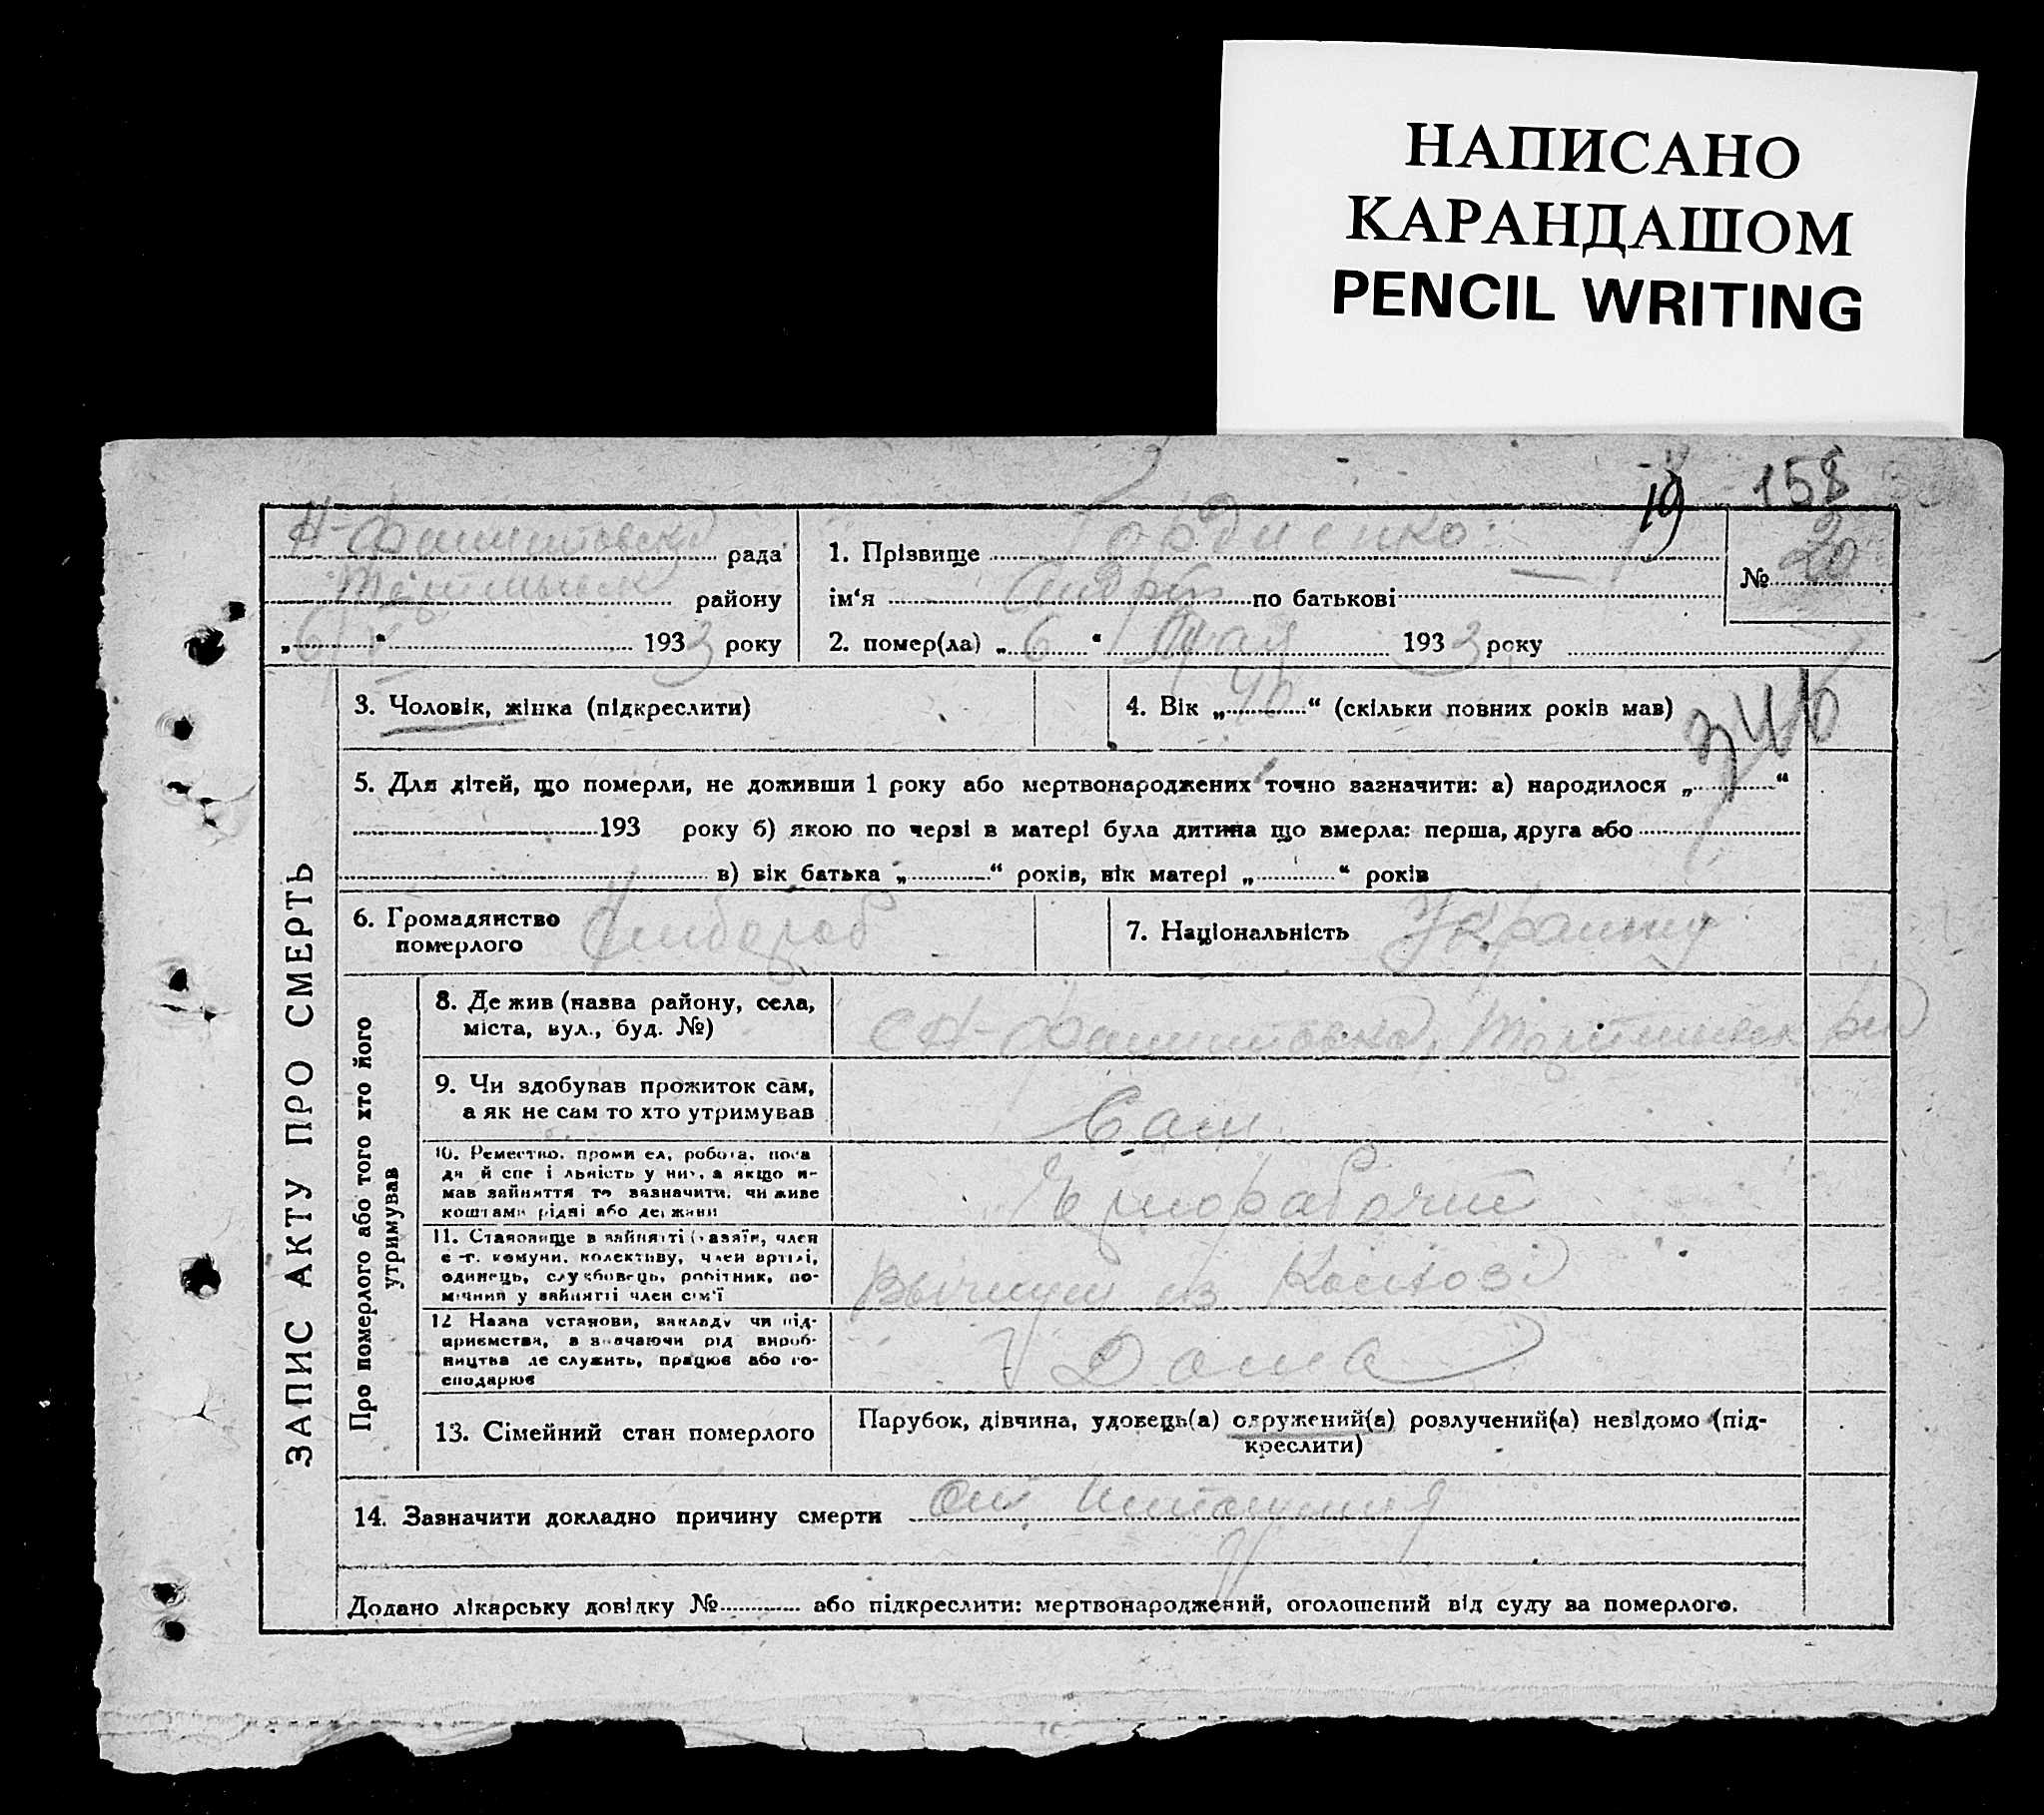 НАПИСАНО
КАРАНДАШОМ
PENCIL WRITING
19 158
рада
району
„6“ V 1933 року
1. Прізвище Гордиенко
ім‘я Андрей по батькові
2. помер(ла) „6“ Мая 1933 року
№ 20
ЗАПИС АКТУ ПРО СМЕРТЬ
3. Чоловік, жінка (підкреслити)
4. Вік „46“ (скільки повних років мав)
346
5. Для дітей, що померли, не доживши 1 року або мертвонароджених точно вазначити: а) народилося „ “
193 року б) якою по черзі в матері була дитина що вмерла: перша, друга або
в) вік батька „ “ років, вік матері „ “ років
6. Громадянство
померлого
7. Національність Украинец
Про померлого або того хто його
утримував
8. Де жив (назва району, села,
міста, вул., буд. №)
9. Чи здобував прожиток сам,
а як не сам то хто утримував
Сам
10. Ремество, робота,
мав зайняття то вазначити, чи живе
коштами рідні або держави
Чернорабочий
11. Становище в зайнятті член
комуни, колективу, член артілі,
одинець, службовець, робітник, по-
мічний у зайнятті член сім‘ї
из
12 Назва установи, закладу чи під-
приємства, рід вироб-
ництва де служить, працює або го-
сподарює
Дома
13. Сімейний стан померлого
Парубок, дівчина, удовець(а) одружений(а) розлучений(а) невідомо (під-
креслити)
14. Зазначити докладно причину смерти От истощения
Додано лікарську довідку № або підкреслити: мертвонароджений, оголошений від суду ва померлого.